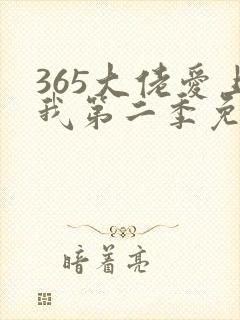 365大佬爱上
我第二季免
暗着亮